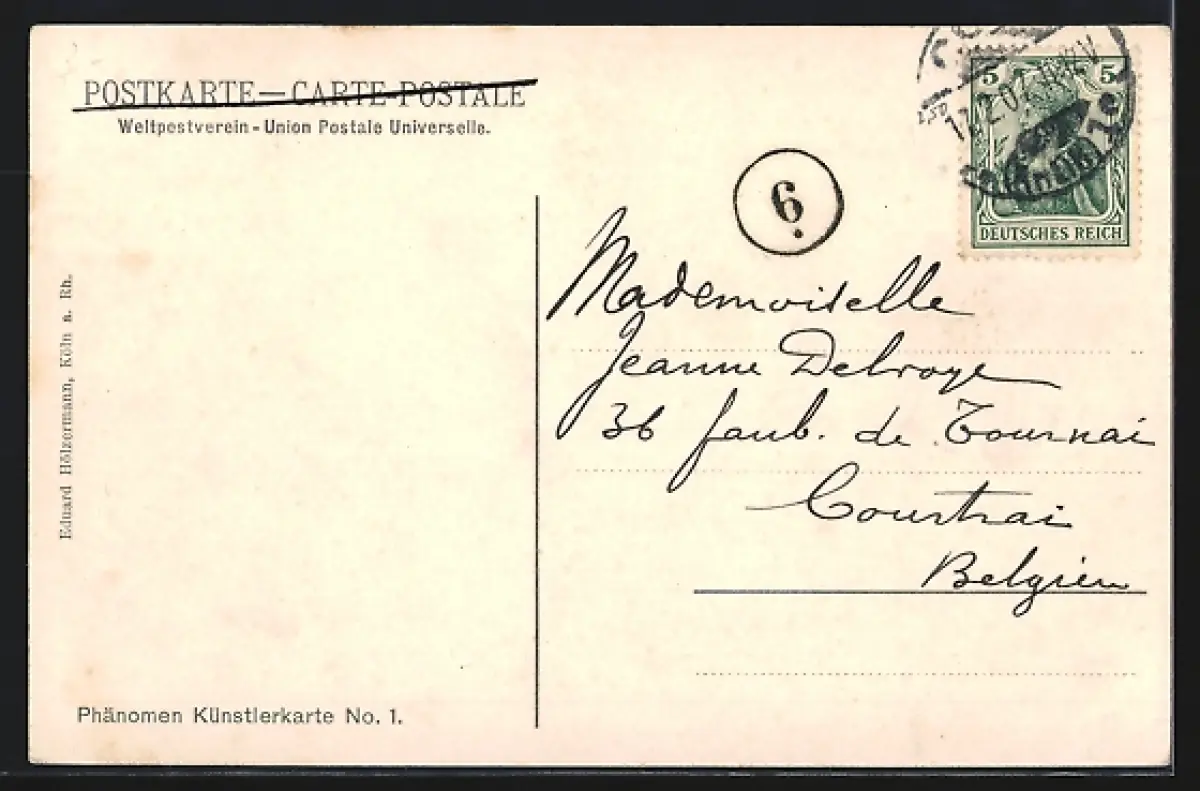 POSTKARTE—CARTE POSTALE
Weltpostverein - Union Postale Universelle.
5 5
DEUTSCHES REICH
6.
Mademoiselle
Jeanne Delvoye
36 faub. de Tournai
Courtrai
Belgien
Eduard Hölzermann, Köln a. Rh.
Phänomen Künstlerkarte No. 1.